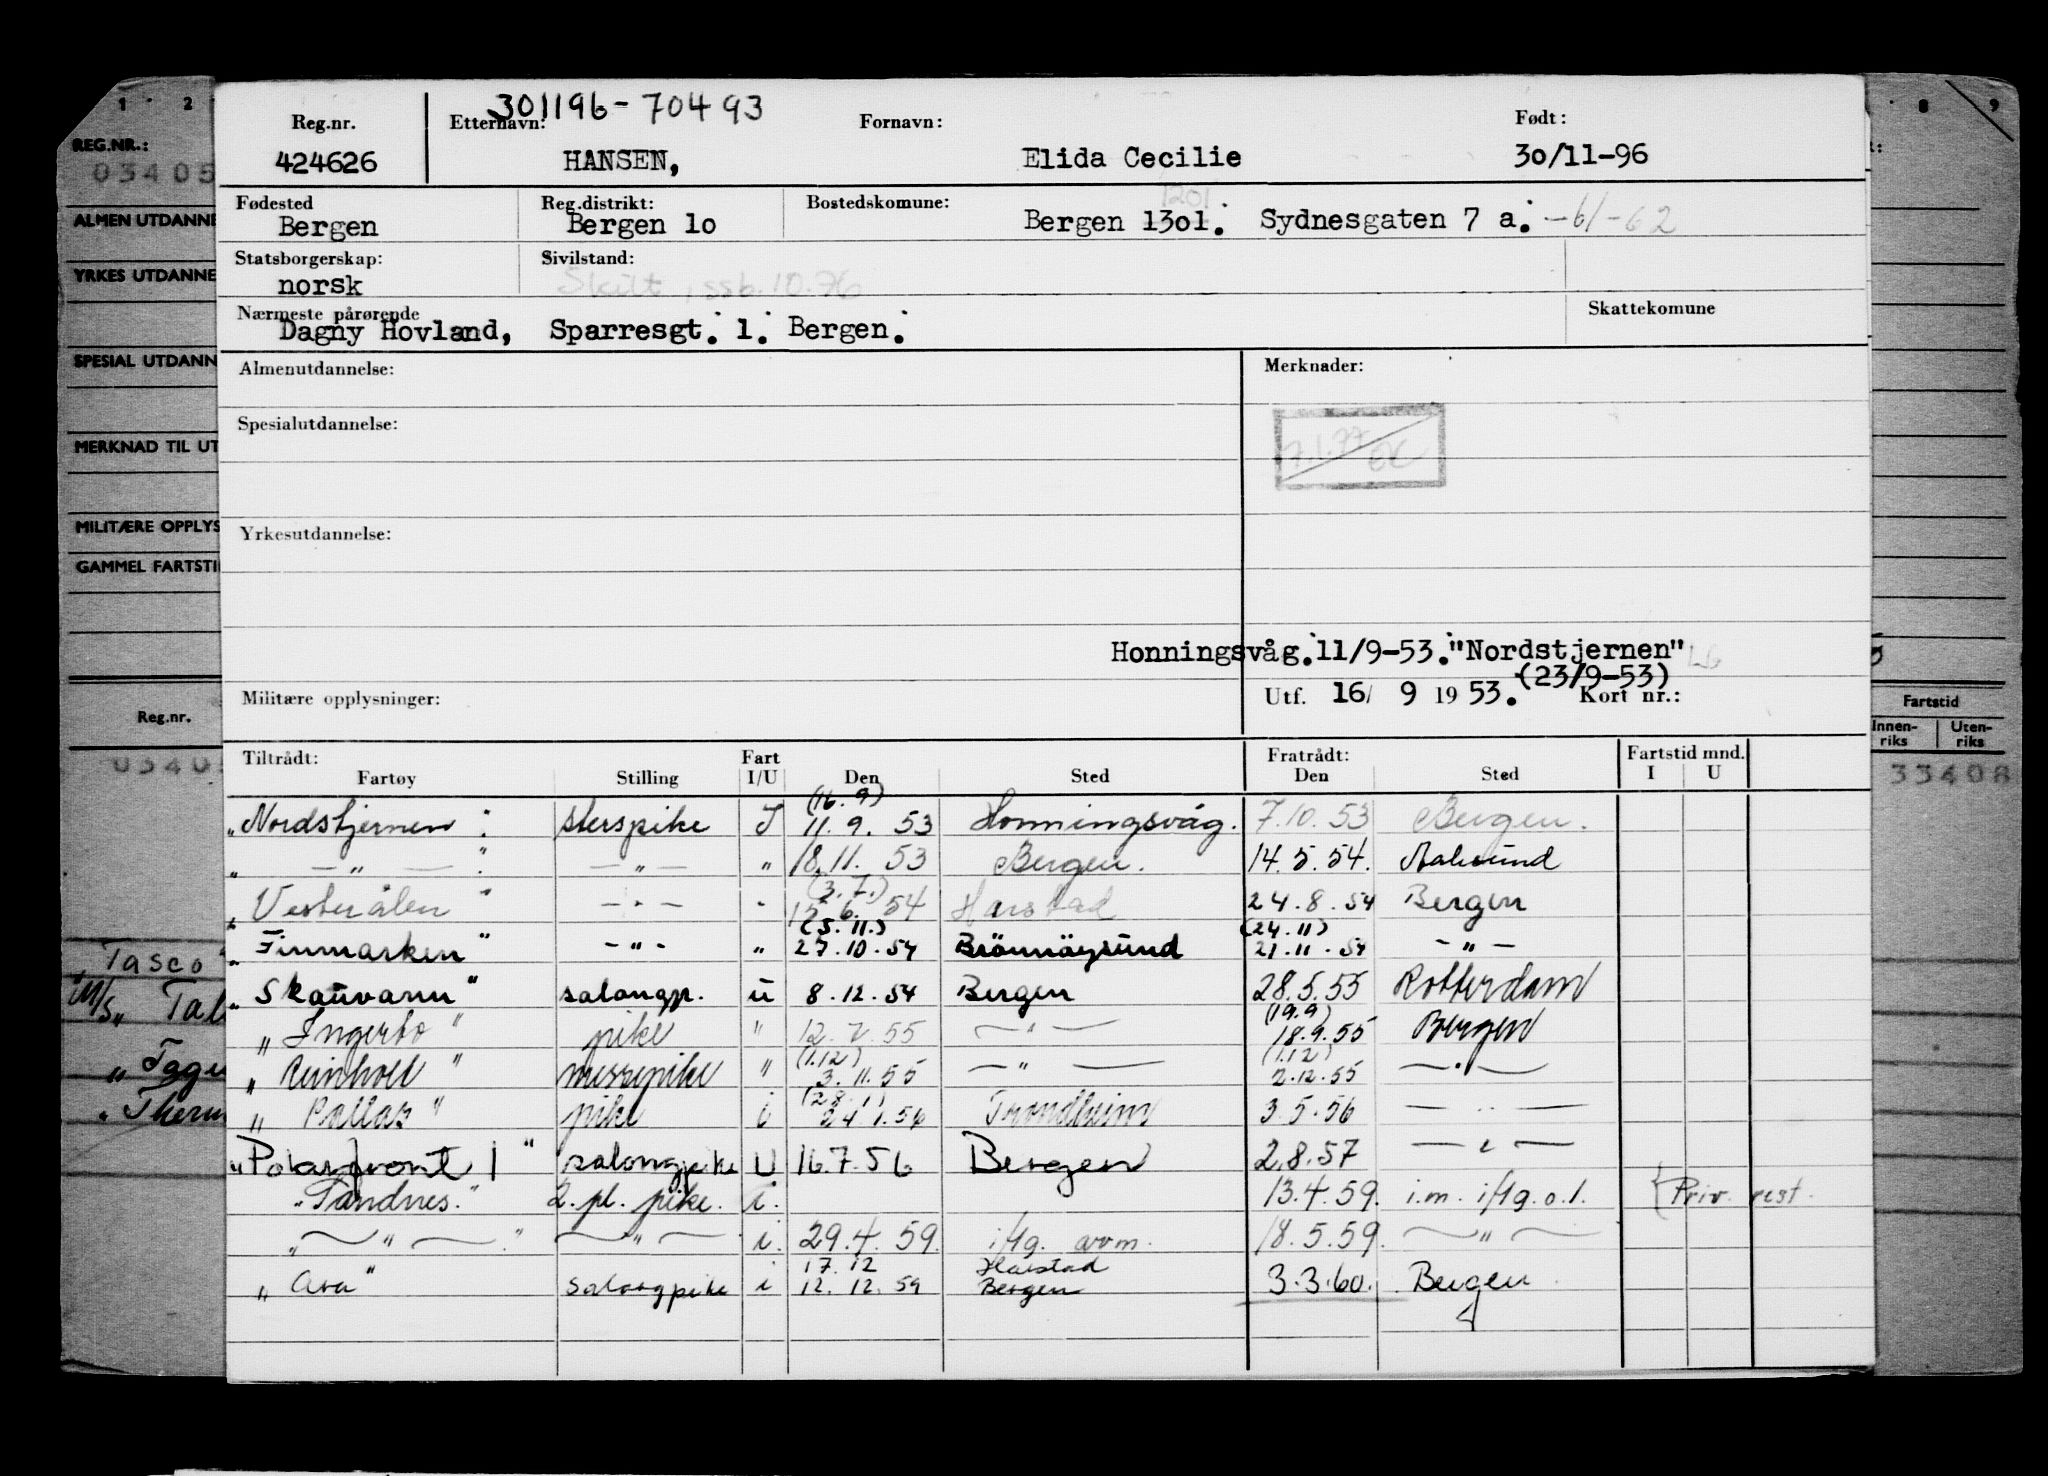 1 2
8 9
REG.NR.:
03405
ALMEN UTDANNE
YRKES UTDANNE
SPESIAL UTDANN
MERKNAD TIL UT
MILITÆRE OPPLYS
GAMMEL FARTSTI
Reg.nr.
Tasco
M/S„ Tal
301196-70493
Reg.nr. Etternavn: Fornavn: Født:
424626 HANSEN, Elida Cecilie 30/11-96
1201
Fødested Reg.distrikt: Bostedskomune:
Bergen Bergen 10 Bergen 1301. Sydnesgaten 7 a. -61-62
Statsborgerskap: Sivilstand:
norsk Skilt, ssb.10.76
Nærmeste pårørende Skattekomune
Dagny Hovland, Sparresgt. 1. Bergen.
Almenutdannelse: Merknader:
7.1.77
Spesialutdannelse:
Yrkesutdannelse:
Honningsvåg.11/9-53."Nordstjernen"
(23/9-53)
Militære opplysninger: Utf. 16/ 9 1953. Kort nr.:
Tiltrådt: Fart Fratrådt: Fartstid mnd.
Fartøy Stilling I/U Den Sted Den Sted I U
(16.9)
„Nordstjernen": sterspike I 11.9. 53 Honningsvåg. 7.10.53 Bergen.
„ — " — " — " — " 18.11. 53 Bergen. 14.5.54. Aalesund
(3.7.)
„Vesterålen" — " — " 15.6. 54 Harstad 24.8.54 Bergen
(5.11.) (24.11)
„Finmarken" - " - " 27.10.54 Brönnöysund 21.11.54 - " -
„Skauvann" salongp. u 8.12.54 Bergen 28.5.55 Rotterdam
(19.9)
„Ingerto" pike " 12.7.55 — " — 18.9.55 Bergen
(1.12) (1.12)
messepike " 3.11.55 — " — 2.12.55 — " —
(28.1)
„Pallas" pike i 24.1.56 Trondheim 3.5.56 — " —
„Polarfront I" salongpike U 16.7.56 Bergen 2.8.57 — " —
„Sandnes." 2. pl. pike. i. 13.4.59. i.m. i flg. o.l. { Priv. rest.
„ — " — " — " — i. 29.4.59. i flg. avm. 18.5.59. — " —
17.12 Harstad
„Ara" salongpike i 12.12.59 Bergen 3.3.60. Bergen
Fartstid
Innen-riks Uten-riks
33408